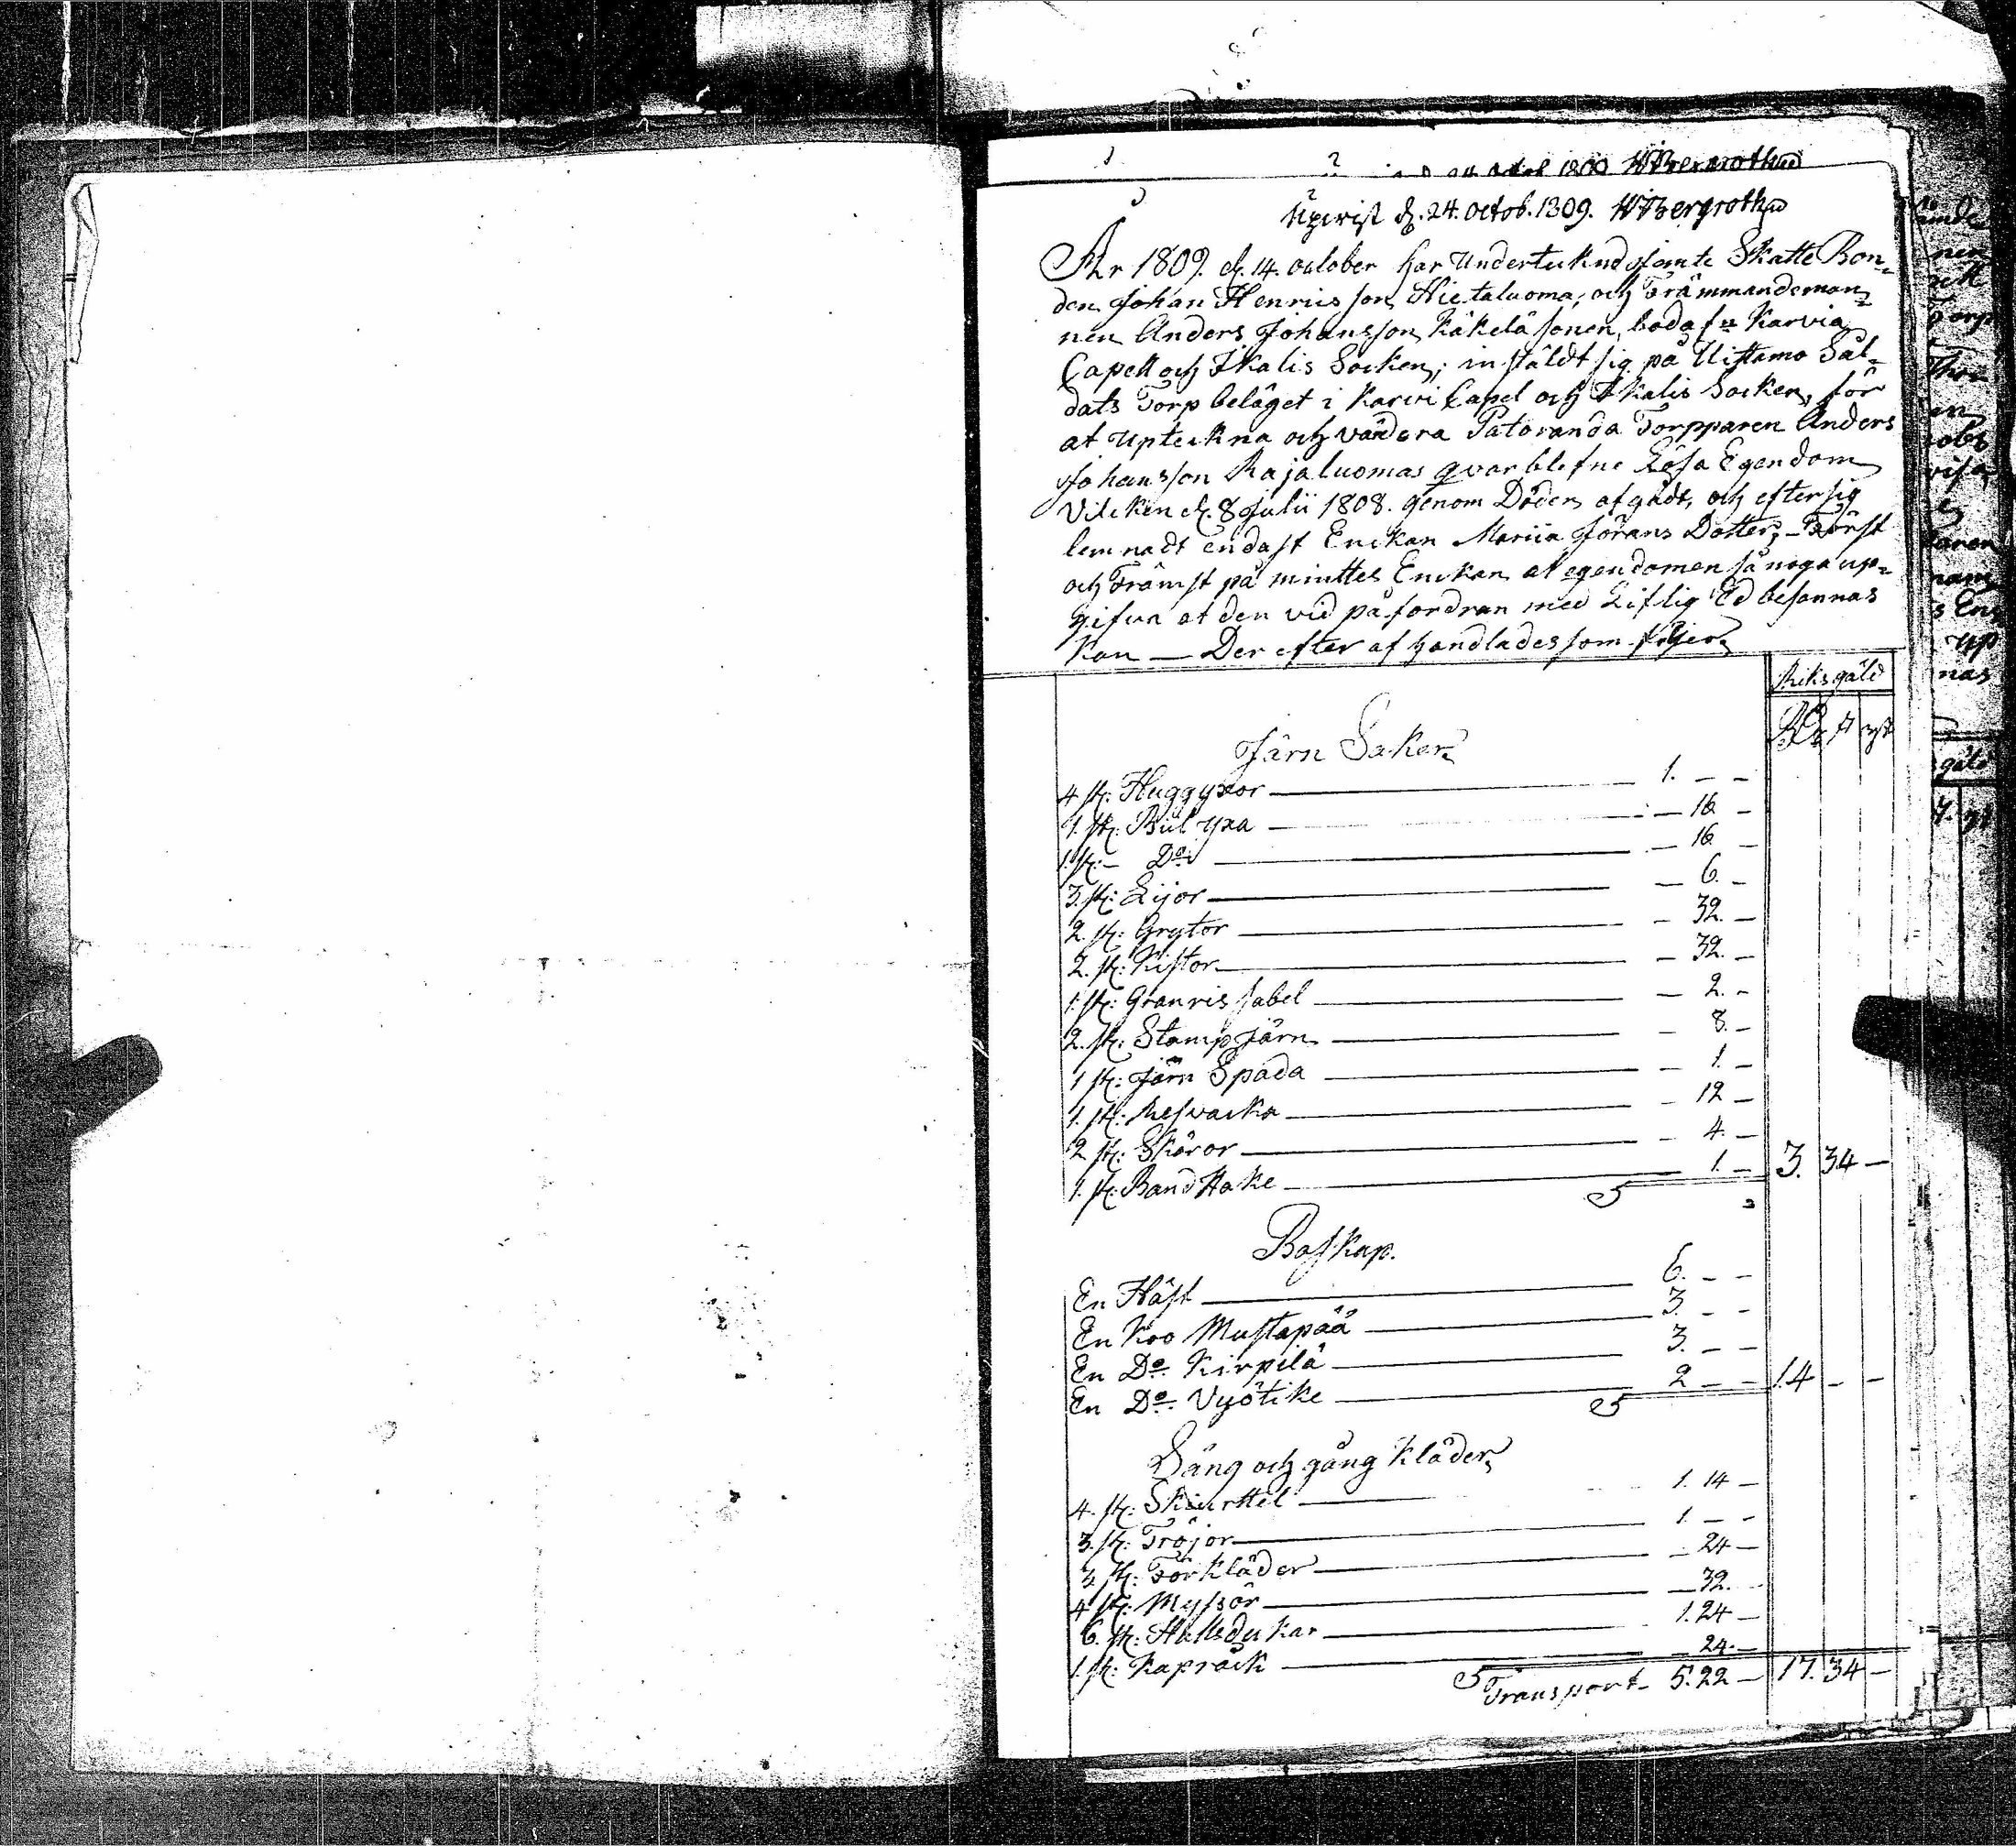 Upvist d. 24. Octob. 1809. W Bergroth
År 1809. d. 14. October har Underteknad jemte Skatte Bon-
den Johan Henricsson Hietaluoma, och Främmandeman-
nen Anders Johansson Käkeläsonen, båda fr Karvia
Capell och Ikalis Socken, instäldt sig på Uistamo Sål-
dats Torp beläget i Karvi Capel och Ikalis Socken, för
at upteckna och värdera Torpparen Anders
Johansson Rajaluomas qvarblefne Lösa Egendom
Vilcken d. 8 Julii 1808. genom Döden afgådt, och efter sig
lemnadt endast Enckan Mariia Jörans Dotter, - Först
och Främst påminttes Enckan at egendomen så noga up-
gifva at den vid påfordran med Liflig Ed besannas
Kan — Der efter afhandlades som följer
Riksgäld
Järn Saker
4 st: Huggyxor — 1. - -
1. st: Bil yxa — 16 -
1. st: - Do — 16 -
3. st: Lijor — 6. -
2. st: Grytor — 32. -
2. st: Kistor — 32. -
1. st: Granris sabel — 2. -
2. st: Stamp järn — 8. -
1 st: Järn Spada — 1. -
1. st: — 12 -
2 st: Skäror — 4. -
1. st: Band Hake — 1. - 3. 34 —
Boskap.
En Häst — 6. - -
En Koo Mustapää — 3. - -
En Do Kirpilä — 3. - -
En Do Vyötike — 2 - - 14 - -
Säng och gång Kläder
4. st: Skiurttel — 1. 14 -
3. st: Tröjor — 1. - -
3 st: Förkläder — 24 -
4 st: Myssor — 32. -
6. st: Hallsdukar — 1. 24 -
1. st: Kapråck — 24 -
Transport - 5. 22 - 17. 34 -